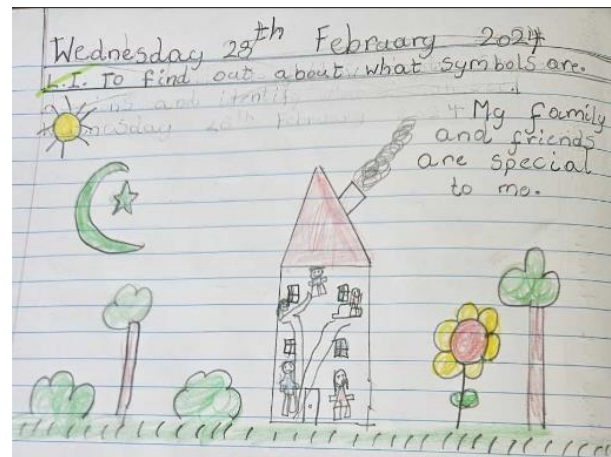 Wednesday 28th February 2024
L.I. To find out about what symbols are.
My family
and friends
are special
to me.